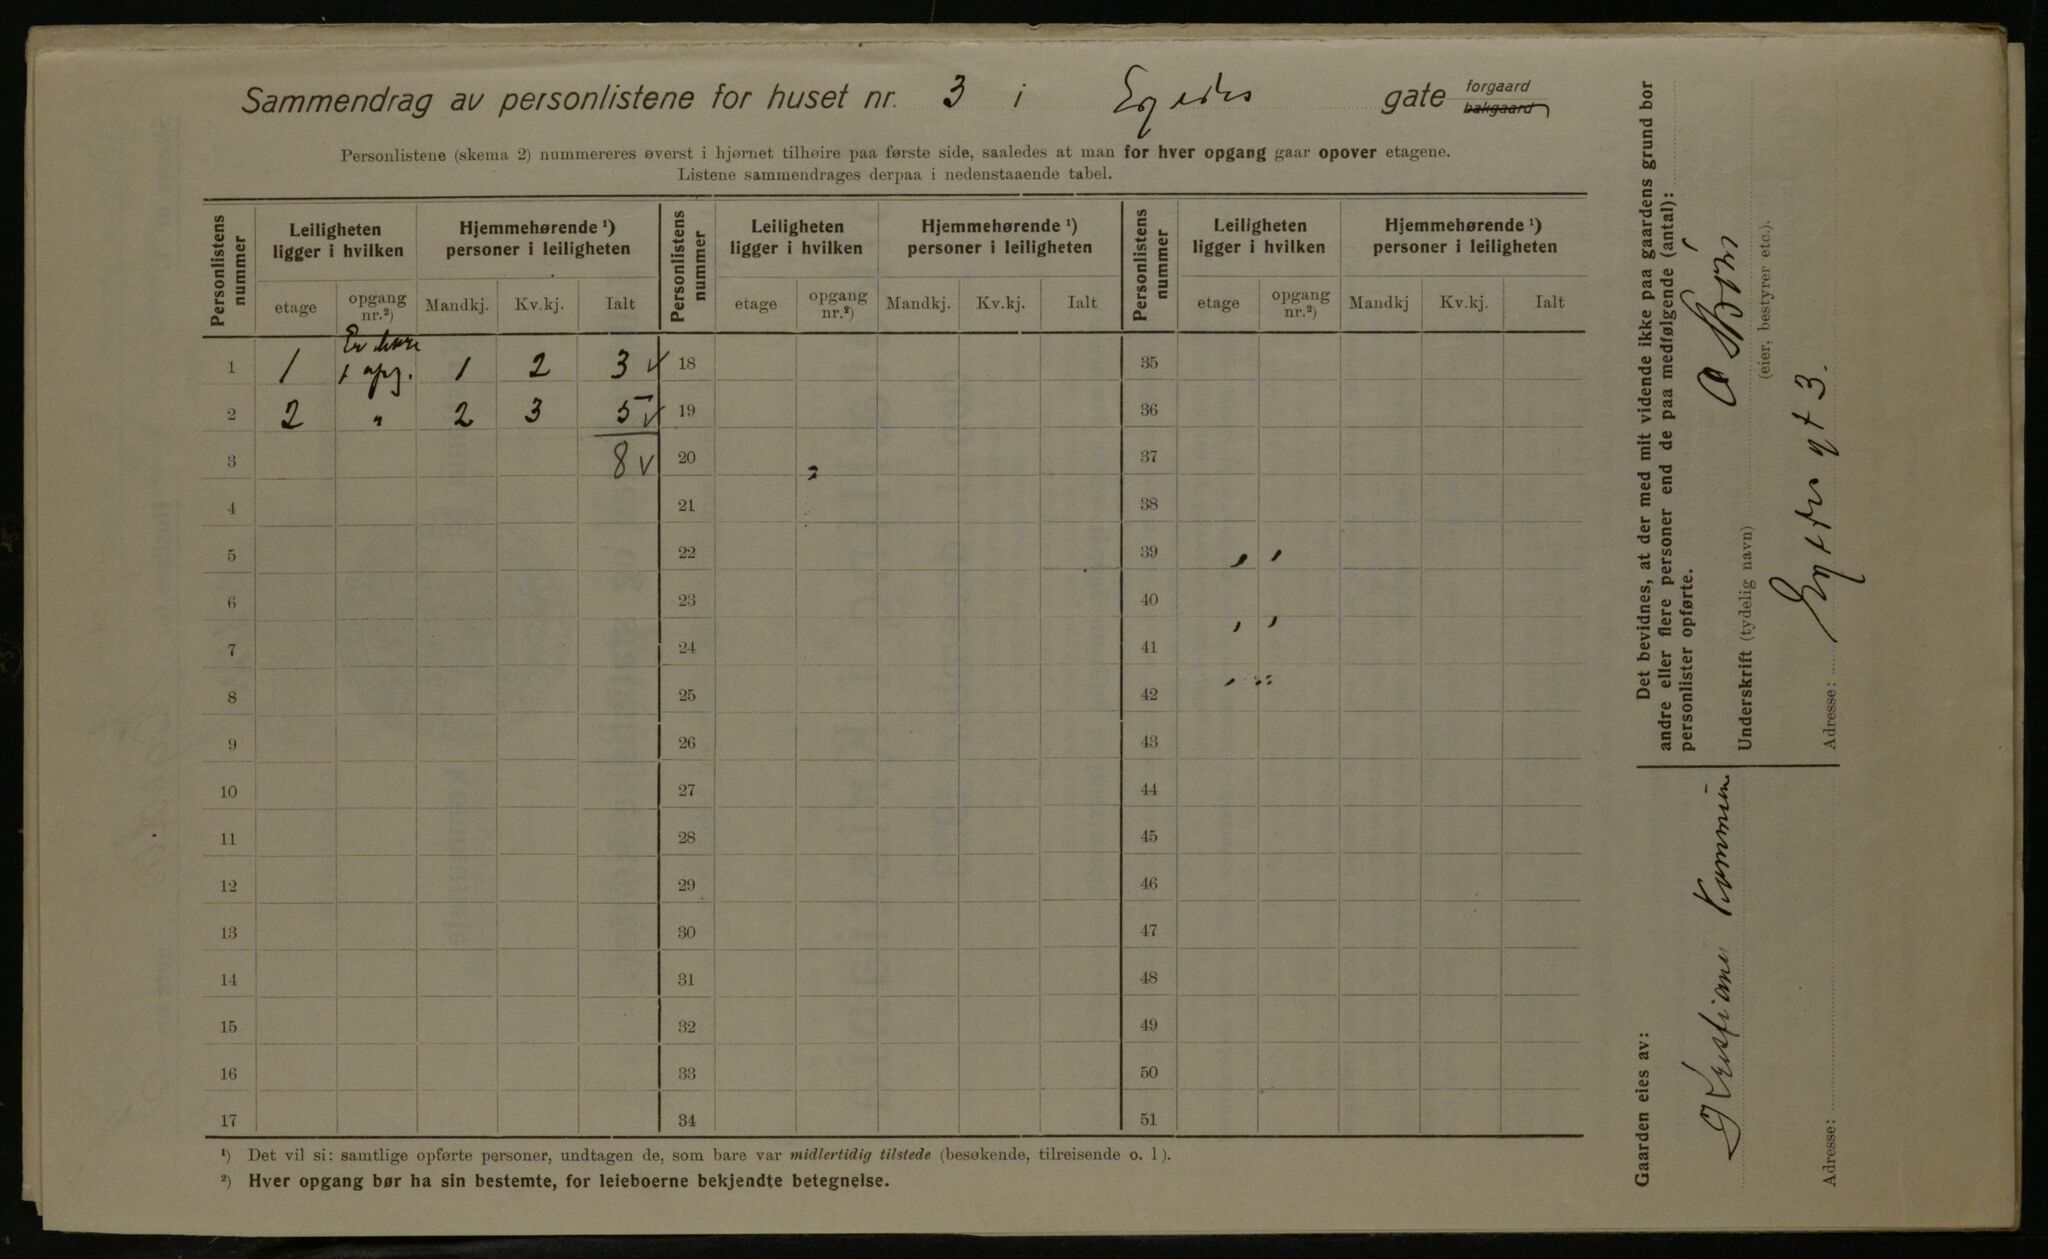 Sammendrag av personlistene for huset nr. 3 i Egedes gate forgaard bakgaard
Personlistene (skema 2) nummereres øverst i hjørnet tilhøire paa første side, saaledes at man for hver opgang gaar opover etagene.
Listene sammendrages derpaa i nedenstaaende tabel.
Personlistens nummer Leiligheten ligger i hvilken Hjemmehørende ¹) personer i leiligheten Personlistens nummer Leiligheten ligger i hvilken Hjemmehørende ¹) personer i leiligheten Personlistens nummer Leiligheten ligger i hvilken Hjemmehørende ¹) personer i leiligheten
etage opgang nr.²) Mandkj. Kv.kj. Ialt etage opgang nr.²) Mandkj. Kv.kj. Ialt etage opgang nr.²) Mandkj Kv.kj. Ialt
Er bare
1 1 1 opg. 1 2 3 v 18 35
2 2 " 2 3 5 v 19 36
3 8 v 20 37
4 21 38
5 22 39
6 23 40
7 24 41
8 25 42
9 26 43
10 27 44
11 28 45
12 29 46
13 30 47
14 31 48
15 32 49
16 33 50
17 34 51
¹) Det vil si: samtlige opførte personer, undtagen de, som bare var midlertidig tilstede (besøkende, tilreisende o. l).
²) Hver opgang bør ha sin bestemte, for leieboerne bekjendte betegnelse.
Det bevidnes, at der med mit vidende ikke paa gaardens grund bor
andre eller flere personer end de paa medfølgende (antal):
personlister opførte.
Underskrift (tydelig navn)
(eier, bestyrer etc.).
Adresse: gt 3.
Gaarden eies av:
Kristiania Kommune
Adresse: